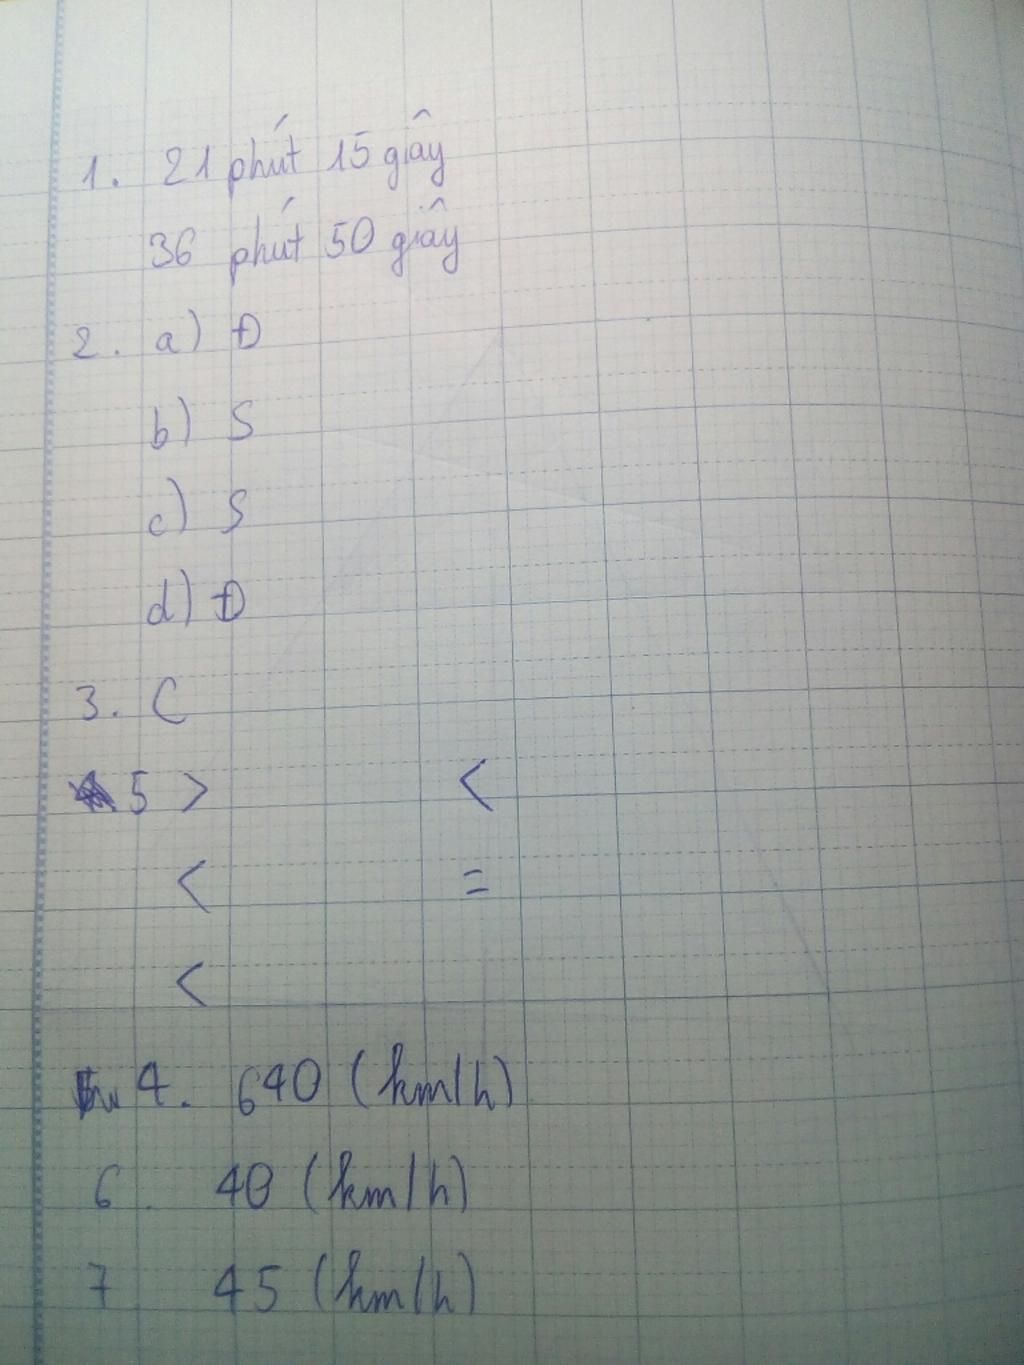 1. 21 phút 15 giây
36 phút 50 giây
2. a) Đ
b) S
c) S
d) Đ
3. C
5 > <
< =
<
4. 640 (km/h)
6. 40 (km/h)
7 45 (km/h)